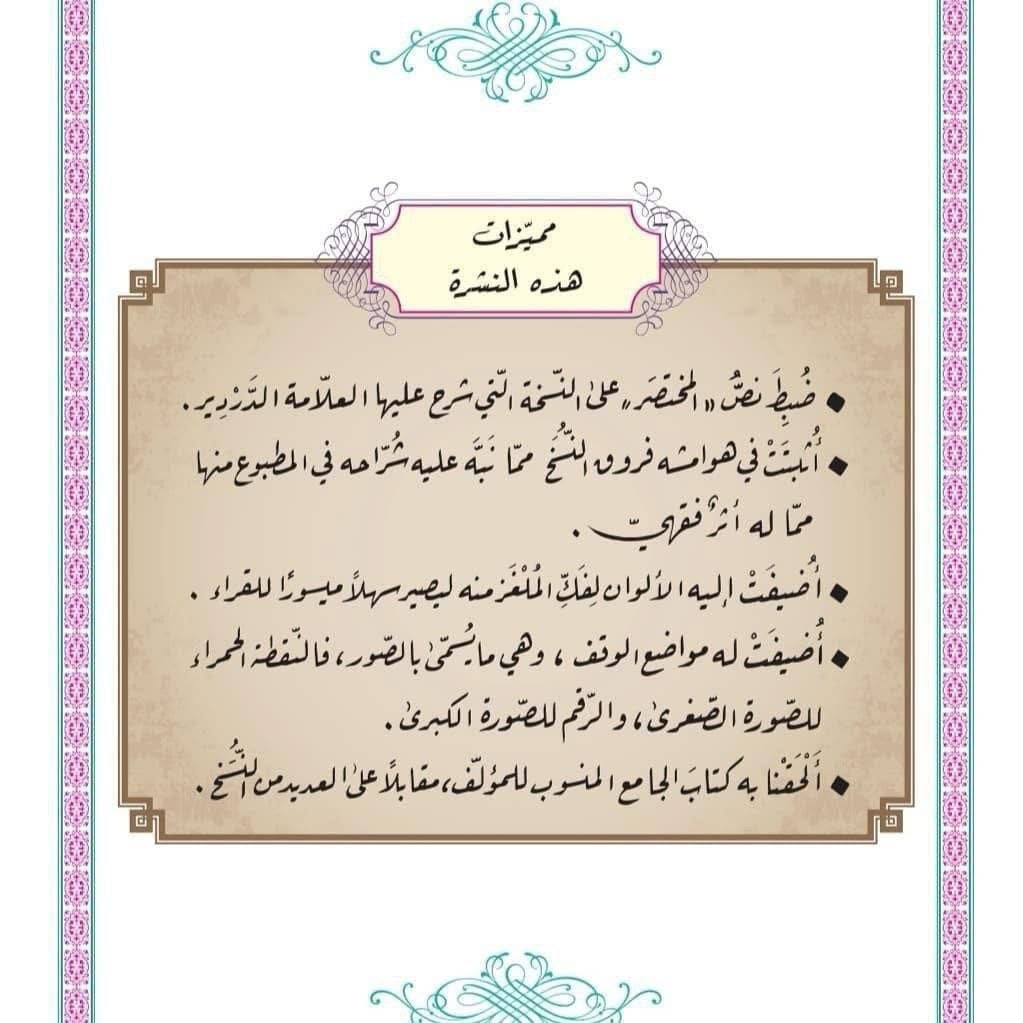 مميّزات
هذه النشرة
◆ ضُبِطَ نصُّ «المختصَر» على النّسخة الّتي شرح عليها العلّامة الدَّرْدِير.
◆ أُثبتَتْ في هوامشه فروق النُّسَخ ممّا نَبَّه عليه شُرّاحه في المطبوع منها
ممّا له أثرٌ فقهيّ.
◆ أُضيفَتْ إليه الألوان لِفَكِّ المُلْغَز منه ليصير سهلاً ميسورًا للقراء.
◆ أُضيفَتْ له مواضع الوقف، وهي ما يُسمّى بالصّور، فالنّقطة الحمراء
للصّورة الصّغرى، والرّقم للصّورة الكبرى.
◆ أَلْحَقْنا به كتابَ الجامع المنسوب للمؤلّف، مقابلاً على العديد من النُّسَخ.